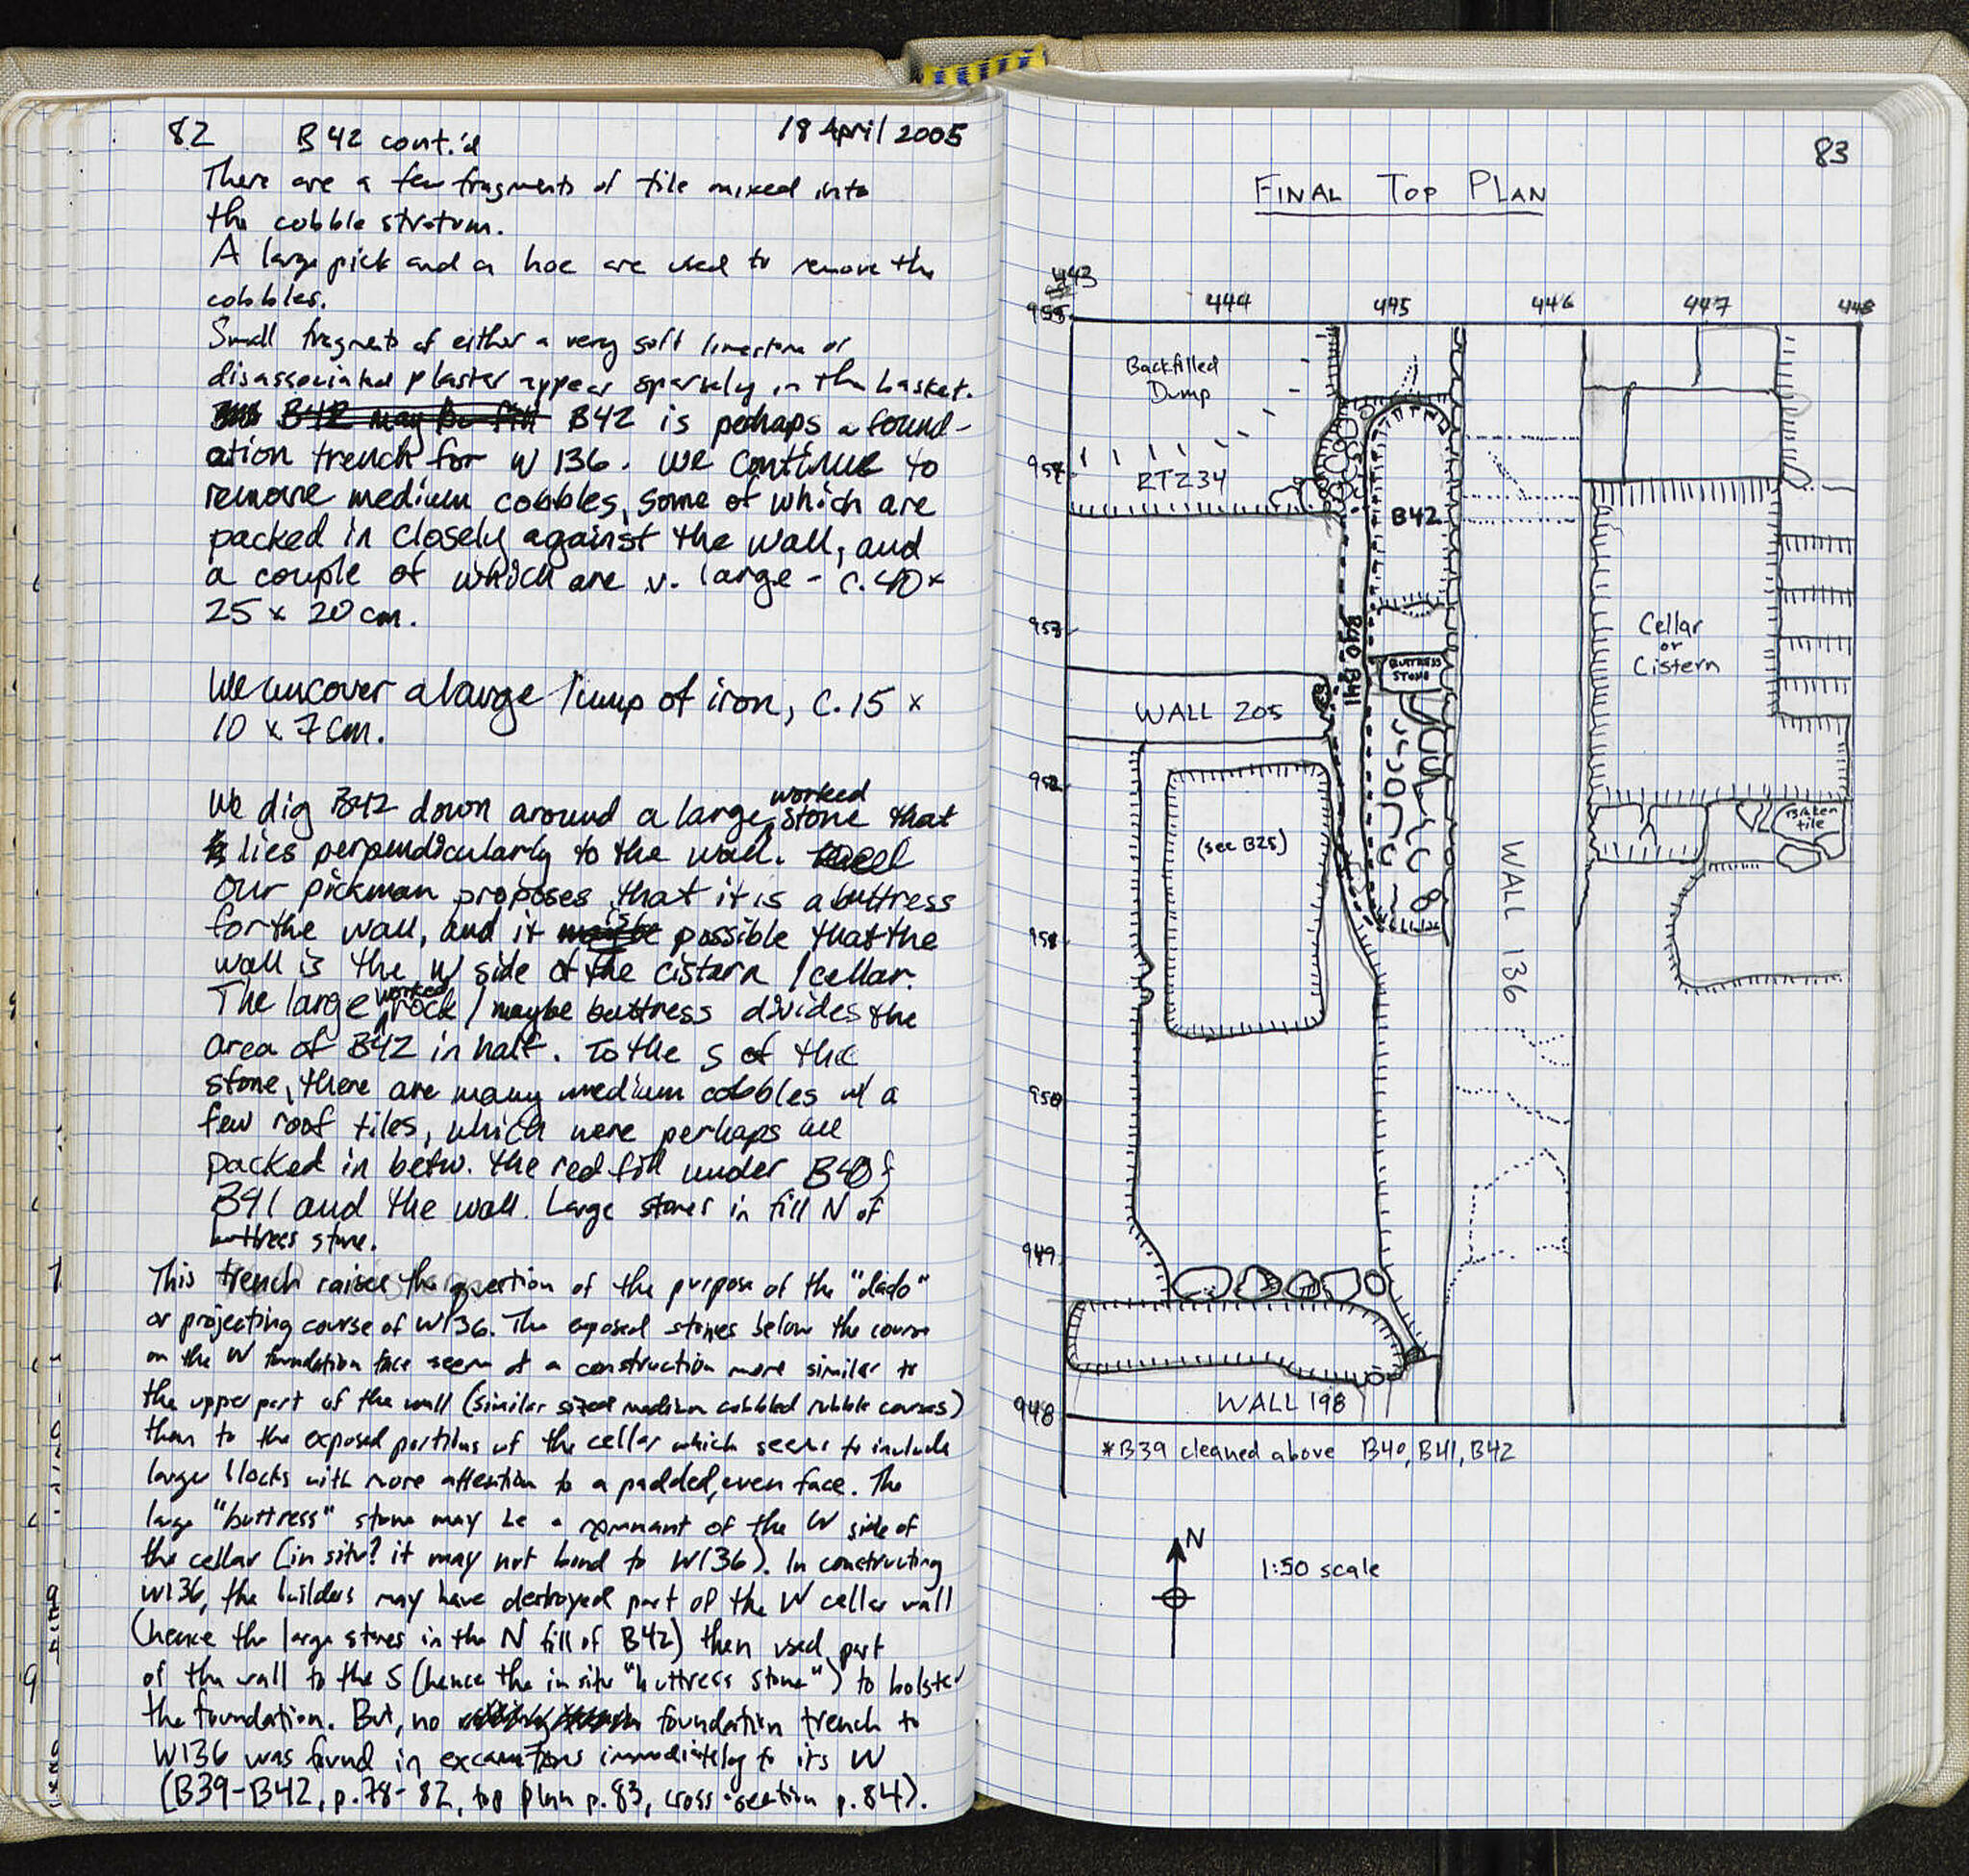 82 B42 cont.'d 18 April 2005
There are a few fragments of tile mixed into
the cobble stratum.
A large pick and a hoe are used to remove the
cobbles.
Small fragments of either a very soft limestone or
disassociated plaster appear sparsely in the basket.
B42 may be fill B42 is perhaps a found-
ation trench for W 136. We continue to
remove medium cobbles, some of which are
packed in closely against the wall, and
a couple of which are v. large - c. 40 x
25 x 20 cm.
We uncover a large lump of iron, c. 15 x
10 x 7 cm.
We dig B42 down around a large worked stone that
lies perpendicularly to the wall.
Our pickman proposes that it is a buttress
for the wall, and it is possible that the
wall is the W side of the cistern / cellar.
The large worked rock / maybe buttress divides the
area of B42 in half. To the S of the
stone, there are many medium cobbles w/ a
few roof tiles, which were perhaps all
packed in betw. the red fill under B40 &
B41 and the wall. Large stones in fill N of
buttress stone.
This trench raises the question of the purpose of the "dado"
or projecting course of W136. The exposed stones below the course
on the W foundation face seem of a construction more similar to
the upper part of the wall (similar sized medium cobbled rubble courses)
than to the exposed portions of the cellar which seems to include
larger blocks with more attention to a padded, even face. The
large "buttress" stone may be a remnant of the W side of
the cellar (in situ? it may not bond to W136). In constructing
W136, the builders may have destroyed part of the W cellar wall
(hence the large stones in the N fill of B42) then used part
of the wall to the S (hence the in situ "buttress stone") to bolster
the foundation. But, no foundation trench to
W136 was found in excavations immediately to its W
(B39-B42, p. 78-82, top plan p. 83, cross-section p. 84).
83
FINAL TOP PLAN
443
955 444 445 446 447 448
Backfilled
Dump
954
RTZ34
B42
953
Cellar
or
Cistern
B40 B41
BUTTRESS
STONE
WALL 205
952
Broken
tile
(see B25)
WALL 136
951
950
949
WALL 198
948
*B39 cleaned above B40, B41, B42
N
1:50 scale